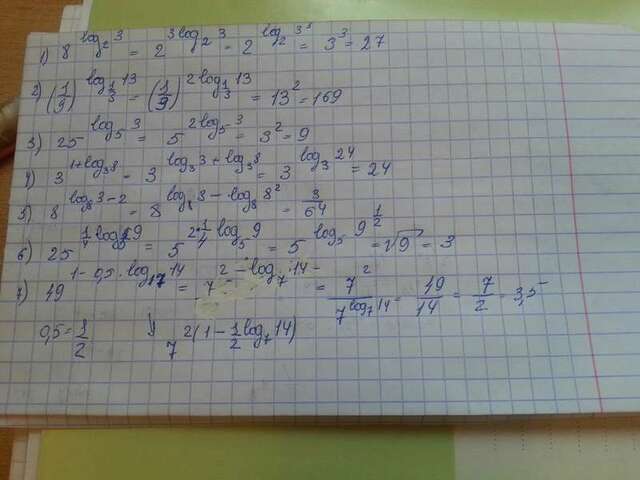 1) 8^{log_2 3} = 2^{3 log_2 3} = 2^{log_2 3^3} = 3^3 = 27
2) (1/9)^{log_{1/3} 13} = (1/9)^{2 log_{1/3} 13} = 13^2 = 169
3) 25^{log_5 3} = 5^{2 log_5 3} = 3^2 = 9
4) 3^{1+log_3 8} = 3^{log_3 3 + log_3 8} = 3^{log_3 24} = 24
5) 8^{log_8 3 - 2} = 8^{log_8 3 - log_8 8^2} = 3/64
6) 25^{1/4 log_5 9} = 5^{2·1/4 log_5 9} = 5^{log_5 9^{1/2}} = √9 = 3
7) 49^{1-0,5·log_{17} 14} = 7^{2-log_7 14} = 7^2/7^{log_7 14} = 49/14 = 7/2 = 3,5
0,5 = 1/2 7^{2(1-1/2 log_7 14)}